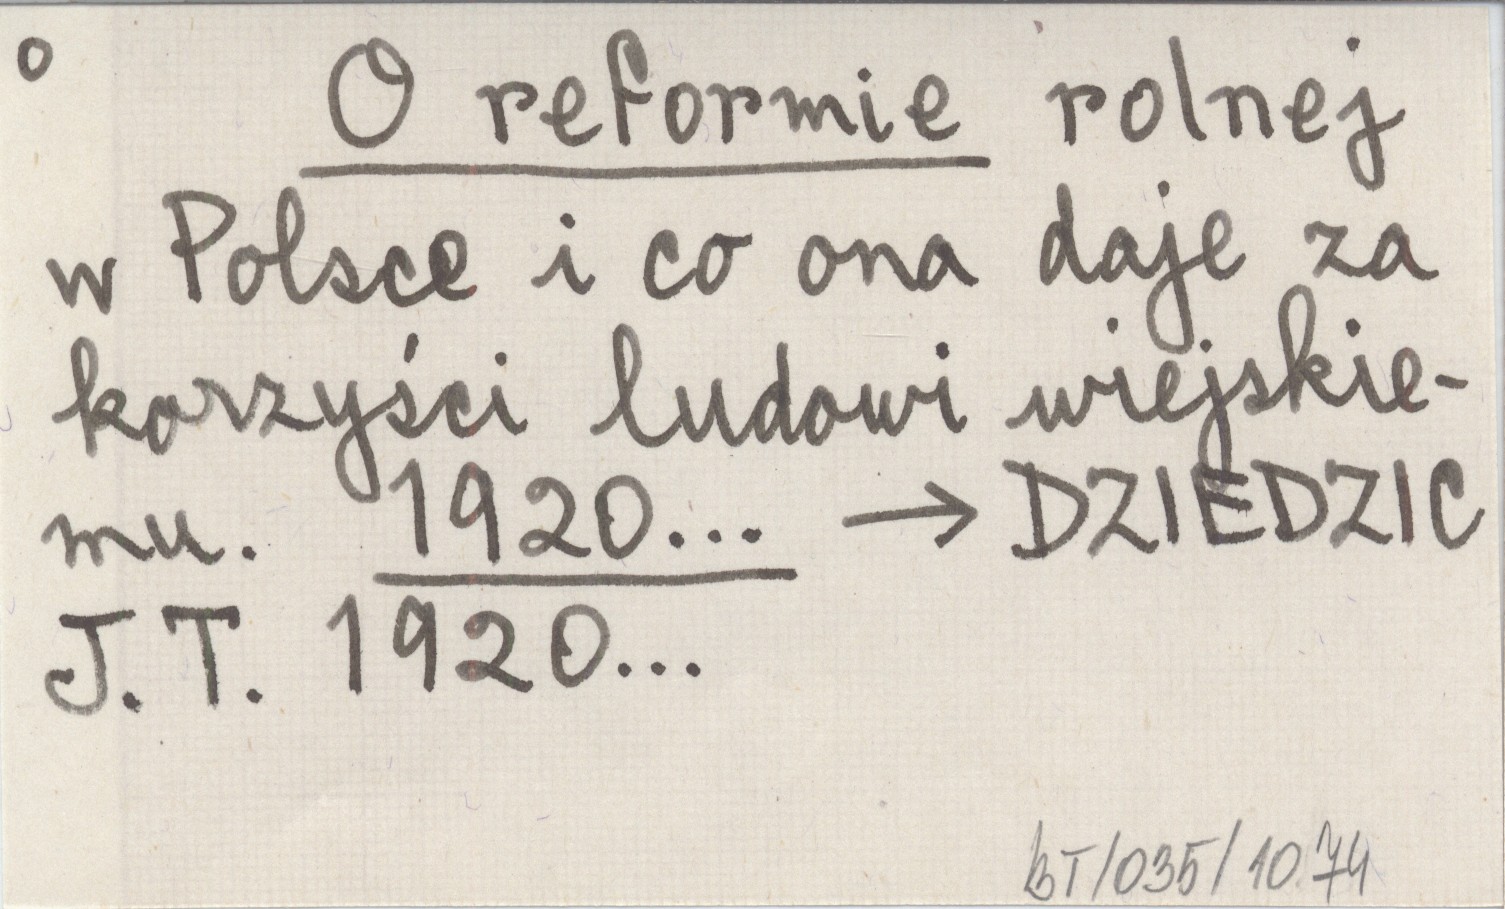 o O reformie rolnej
w Polsce i co ona daje za
korzyści ludowi wiejskie-
mu. 1920... → DZIEDZIC
J.T. 1920...
BT/035/1074